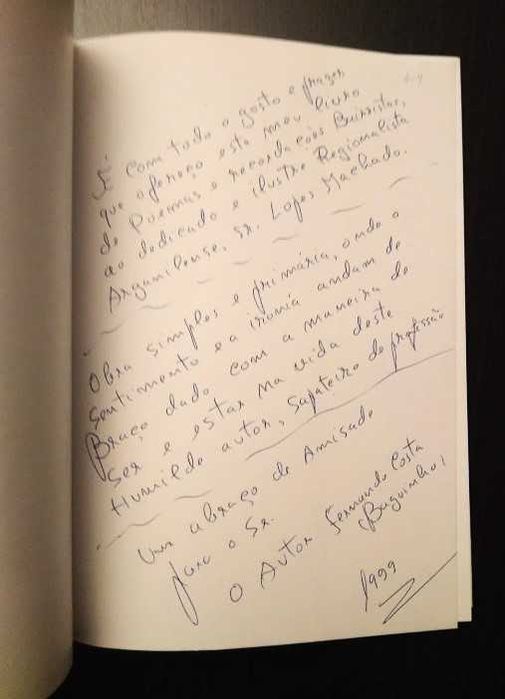 É com todo o gosto e prazer
que ofereço este meu livro
de Poemas e recordações Bairristas,
ao dedicado e ilustre Regionalista
Arganilense, Sr. Lopes Machado.
Obra simples e primária, onde o
sentimento e a ironia andam de
Braço dado com a maneira de
ser e estar na vida deste
Humilde autor, sapateiro de profissão
Um abraço de Amisade
para o Sr.
O Autor Fernando Costa
1999